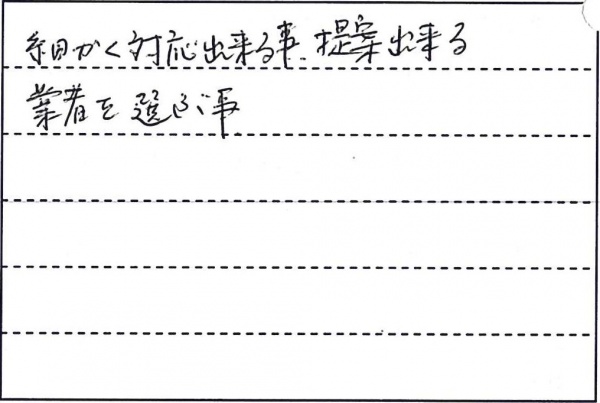 細かく対応出来る事、提案出来る
業者を選ぶ事